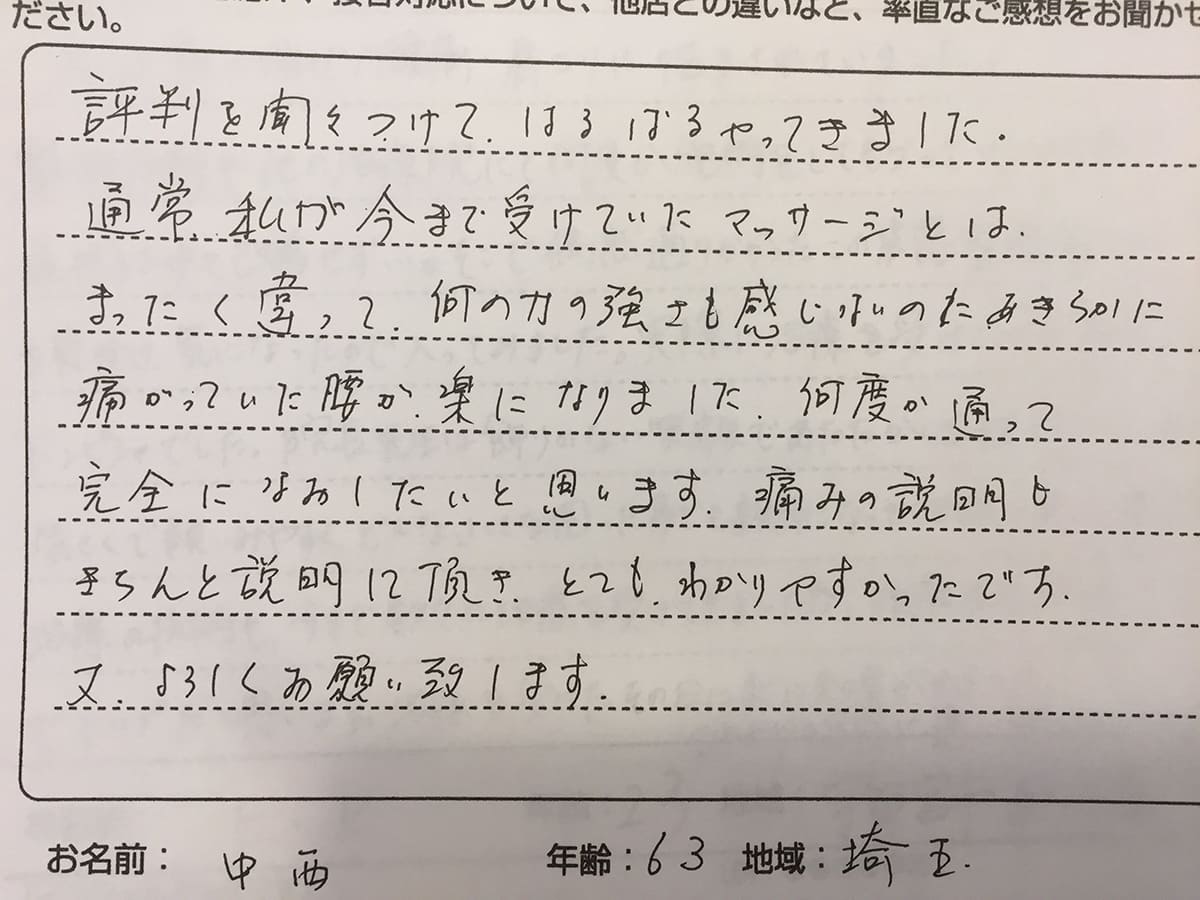 接客対応について、他店との違いなど、率直なご感想をお聞かせ
ださい。
評判を聞きつけて、はるばるやってきました。
通常、私が今まで受けていたマッサージとは、
まったく違って、何の力の強さも感じないのにあきらかに
痛がっていた腰が、楽になりました。何度か通って
完全になおしたいと思います。痛みの説明も
きちんと説明して頂き、とても、わかりやすかったです。
又、よろしくお願い致します。
お名前： 中西
年齢：63 地域：埼玉.